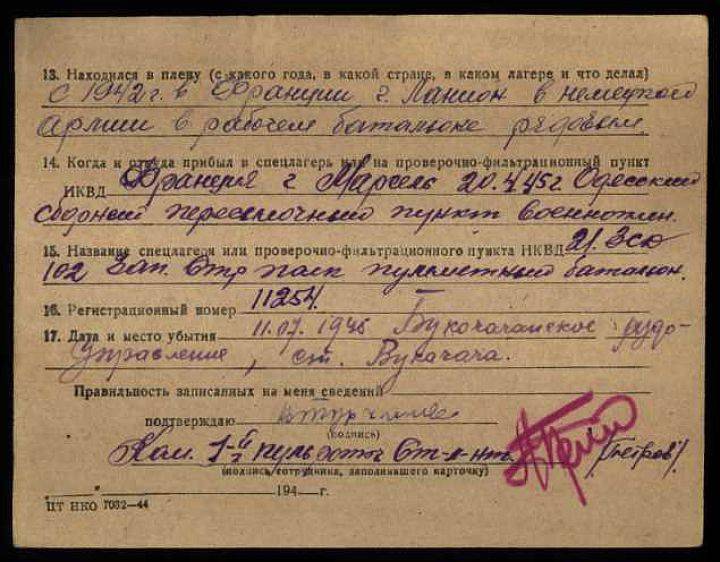 13. Находился в плену (с какого года, в какой стране, в каком лагере и что делал)
с 1942 г. в Франции г. Ланион в немецкой
армии в рабочем батальоне рядовым.
14. Когда и откуда прибыл в спецлагерь или на проверочно-фильтрационный пункт
НКВД Франция г Марсель 20.4.45г Одесский
сборный пересылочный пункт военноплен.
15. Название спецлагеря или проверочно-фильтрационного пункта НКВД 21. Зсд
102 Зап. Стр полк пулеметный батальон.
16. Регистрационный номер 11254.
17. Дата и место убытия 11.07.1945 Букочачинское рудо-
управление, ст. Букачача.
Правильность записанных на меня сведений
подтверждаю
(подпись)
Ком. 1-й пуль роты Ст-л-нт. (Петров)
(подпись сотрудника, заполнившего карточку)
194 г.
ЦТ НКО 7032—44